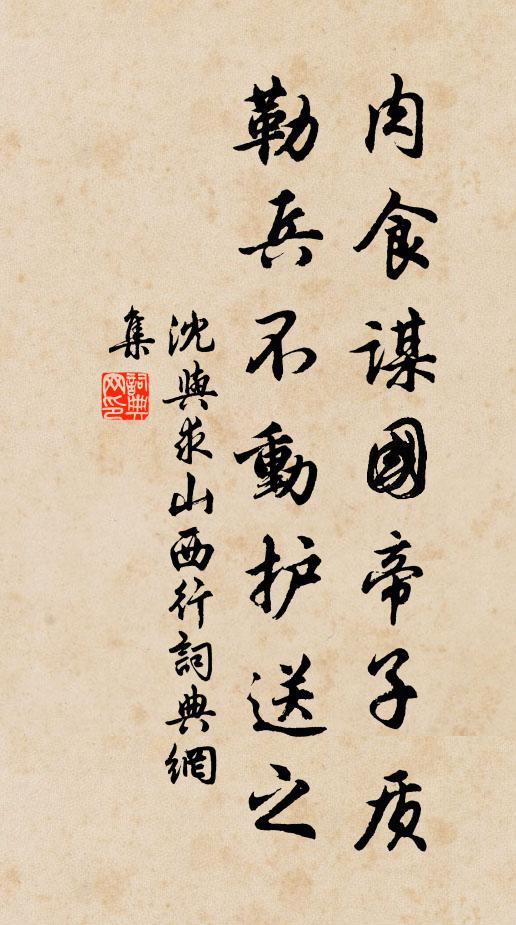 肉食謀國帝子质
勒兵不動护送之
沈與求山西行詞典網
集
詞典
网印